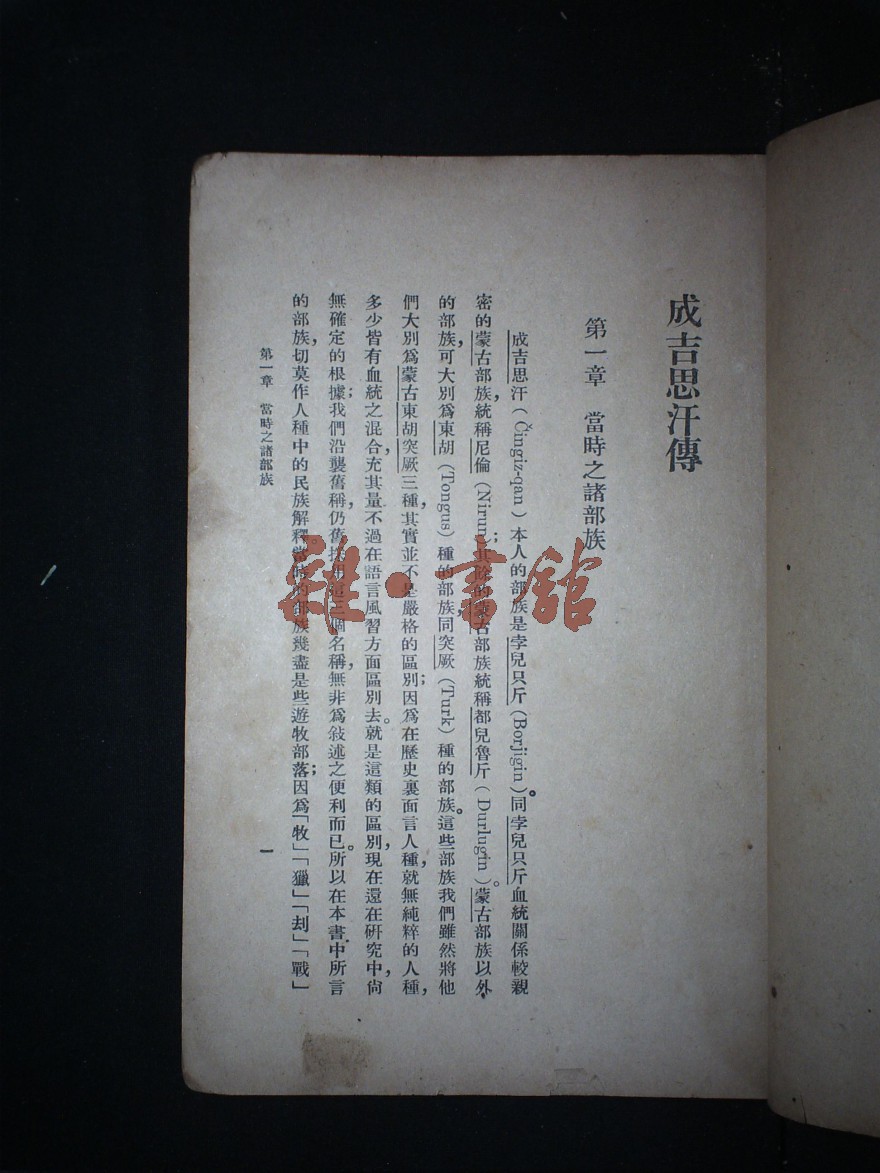 成吉思汗傳
第一章　當時之諸部族
成吉思汗（Čingiz-qan）本人的部族是孛兒只斤（Borjigin）。同孛兒只斤血統關係較親
密的蒙古部族，統稱尼倫（Nirun）；其餘的蒙古部族統稱都兒魯斤（Durlugin）。蒙古部族以外
的部族，可大別爲東胡（Tongus）種的部族，同突厥（Turk）種的部族。這些部族我們雖然將他
們大別爲蒙古東胡突厥三種，其實並不是嚴格的區別；因爲在歷史裏面言人種，就無純粹的人種，
多少皆有血統之混合，充其量不過在語言風習方面區別去。就是這類的區別，現在還在研究中，尙
無確定的根據；我們沿襲舊稱，仍舊採用這三個名稱，無非爲敍述之便利而已。所以在本書中所言
的部族，切莫作人種中的民族解釋。當時的部族幾盡是些遊牧部落；因爲「牧」「獵」「刦」「戰」
第一章　當時之諸部族
一
雜·書館